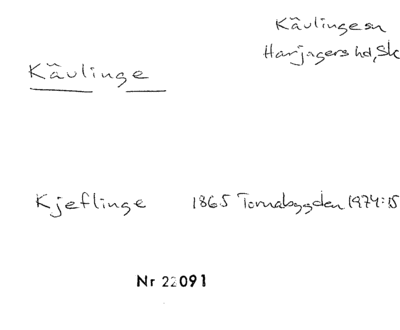 Kävlinge sn
Harjagers hd, Sk
Kävlinge
Kjeflinge 1865 Tornabygden 1974:15
Nr 22091